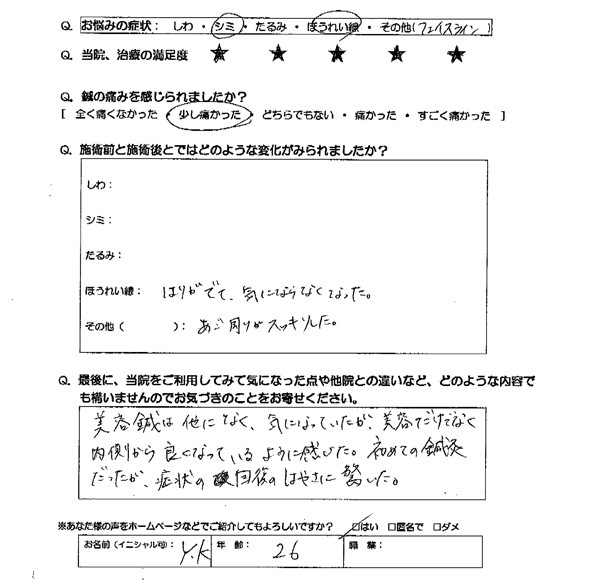 Q. お悩みの症状：しわ・シミ・たるみ・ほうれい線・その他(フェイスライン)
Q. 当院、治療の満足度 ★ ★ ★ ★ ★
Q. 鍼の痛みを感じられましたか？
[ 全く痛くなかった ・ 少し痛かった ・ どちらでもない ・ 痛かった ・ すごく痛かった ]
Q. 施術前と施術後とではどのような変化がみられましたか？
しわ：
シミ：
たるみ：
ほうれい線： はりがでて、気にならなくなった。
その他（ ）： あご周りがスッキリした。
Q. 最後に、当院をご利用してみて気になった点や他院との違いなど、どのような内容で
も構いませんのでお気づきのことをお寄せください。
美容鍼は他になく、気になっていたが、美容だけでなく
内側から良くなっているように感じた。初めての鍼灸
だったが、症状の回復のはやさに驚いた。
※あなた様の声をホームページなどでご紹介してもよろしいですか？ □はい □匿名で □ダメ
お名前(イニシャル可)： Y.K 年 齢： 26 職 業：